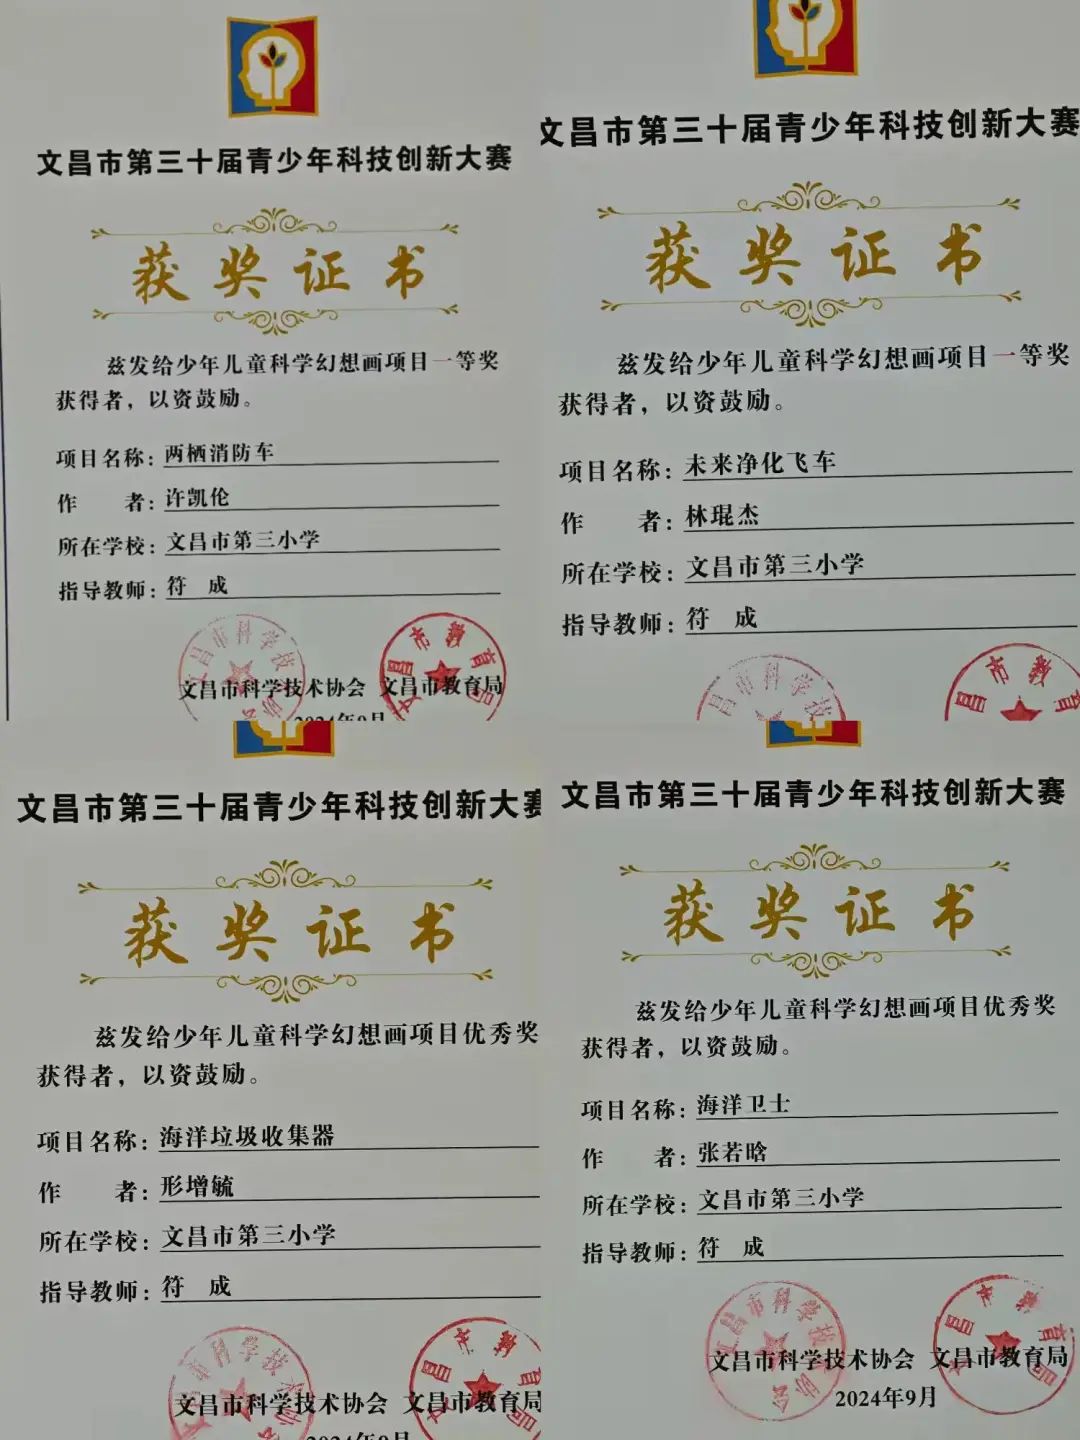 文昌市第三十届青少年科技创新大赛
获奖证书
兹发给少年儿童科学幻想画项目一等奖
获得者，以资鼓励。
项目名称：两栖消防车
作 者：许凯伦
所在学校：文昌市第三小学
指导教师：符 成
文昌市科学技术协会 文昌市教育局
2024年9月
文昌市第三十届青少年科技创新大赛
获奖证书
兹发给少年儿童科学幻想画项目一等奖
获得者，以资鼓励。
项目名称：未来净化飞车
作 者：林琨杰
所在学校：文昌市第三小学
指导教师：符 成
文昌市第三十届青少年科技创新大赛
获奖证书
兹发给少年儿童科学幻想画项目优秀奖
获得者，以资鼓励。
项目名称：海洋垃圾收集器
作 者：形增毓
所在学校：文昌市第三小学
指导教师：符 成
文昌市科学技术协会 文昌市教育局
2024年9月
文昌市第三十届青少年科技创新大赛
获奖证书
兹发给少年儿童科学幻想画项目优秀奖
获得者，以资鼓励。
项目名称：海洋卫士
作 者：张若晗
所在学校：文昌市第三小学
指导教师：符 成
文昌市科学技术协会 文昌市教育局
2024年9月